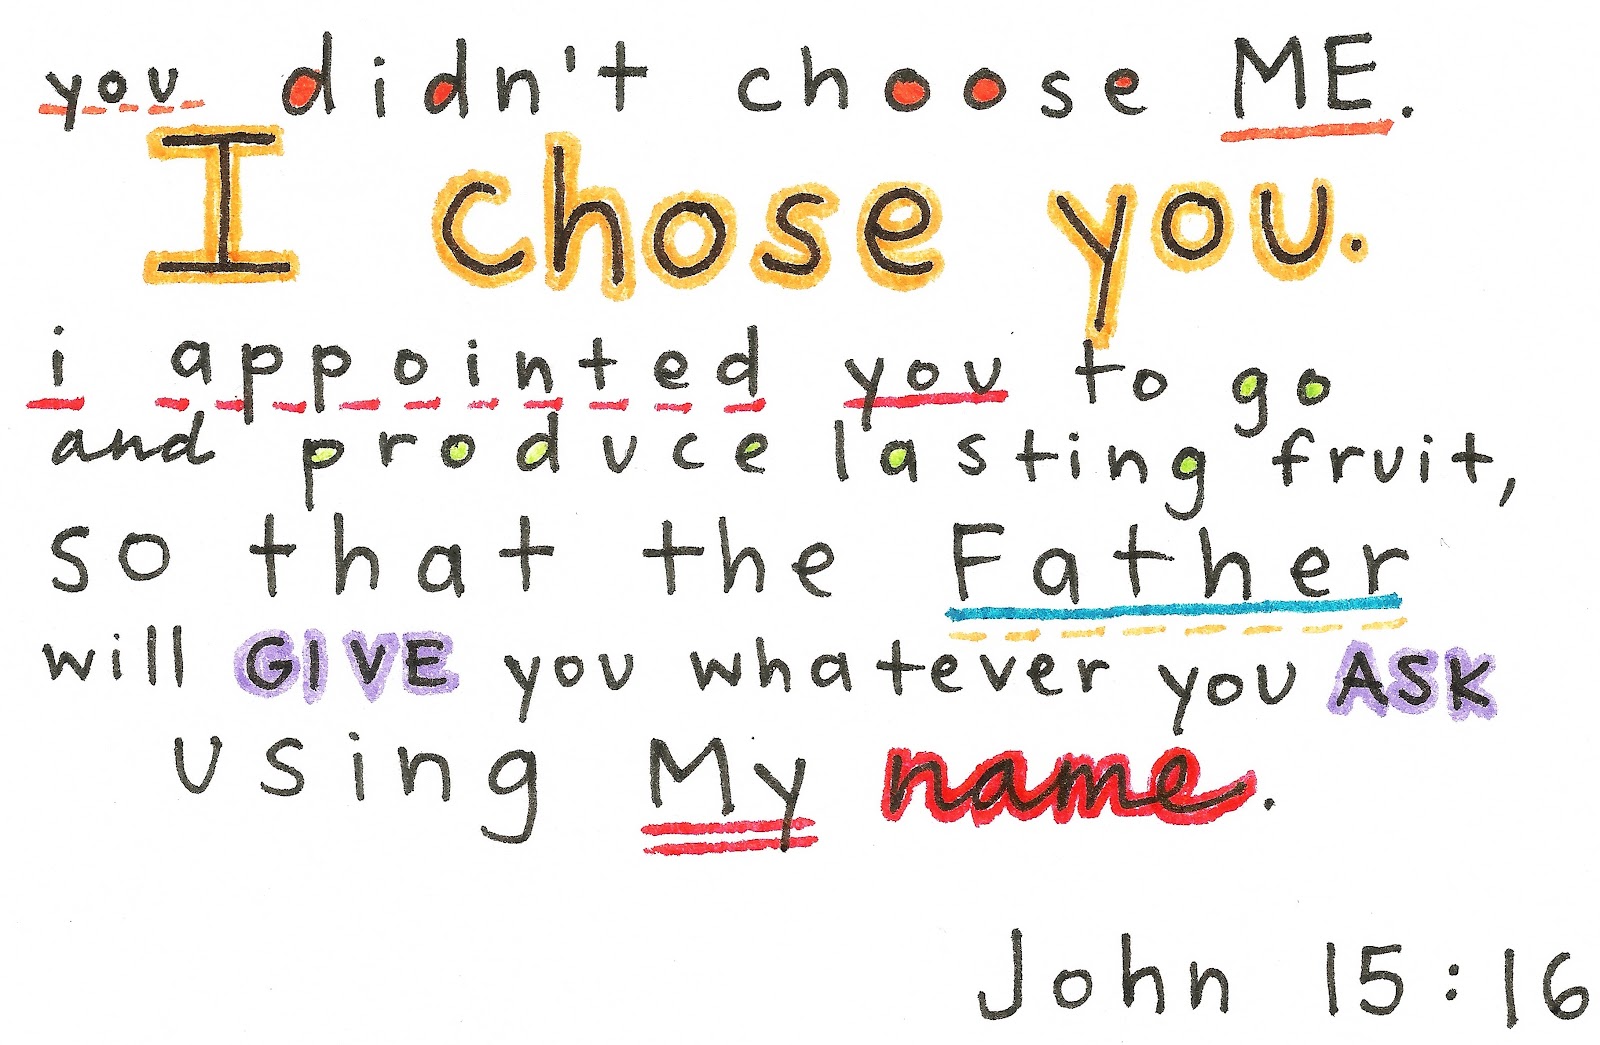 you didn't choose ME.
I chose you.
i appointed you to go
and produce lasting fruit,
so that the Father
will GIVE you whatever you ASK
using My name.
John 15:16